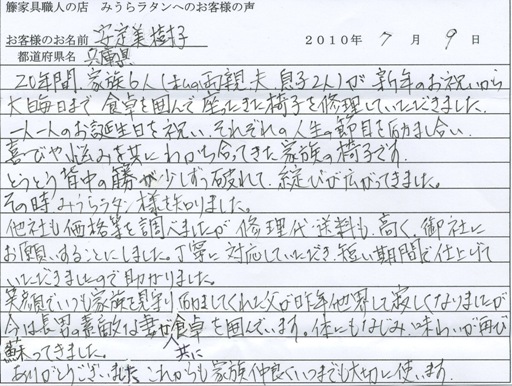 籐家具職人の店 みうらラタンへのお客様の声
お客様のお名前 安定美樹子 2010年 7月 9日
都道府県名 兵庫県
20年間、家族6人(私の両親、夫、息子2人)が 新年のお祝いから
大晦日まで 食卓を囲んで 座ってきた椅子を修理していただきました。
一人一人のお誕生日を祝い、それぞれの人生の節目を励まし合い、
喜びや悩みを共に わかち合ってきた 家族の椅子です。
とうとう 背中の籐が少しずつ破れて、綻びが広がってきました。
その時 みうらラタン様を知りました。
他社も価格等を調べましたが 修理代、送料も 高く、御社に
お願いすることにしました。丁寧に 対応していただき、短い期間で仕上げて
いただきましたので 助かりました。
笑顔でいつも家族を見守り 励ましてくれた父が昨年他界して 寂しくなりましたが
今は 長男の素敵な妻が共に食卓を囲んでいます。体にもなじみ、味わいが再び
蘇ってきました。
ありがとうございました。これからも 家族仲良くいつまでも大切に使います。